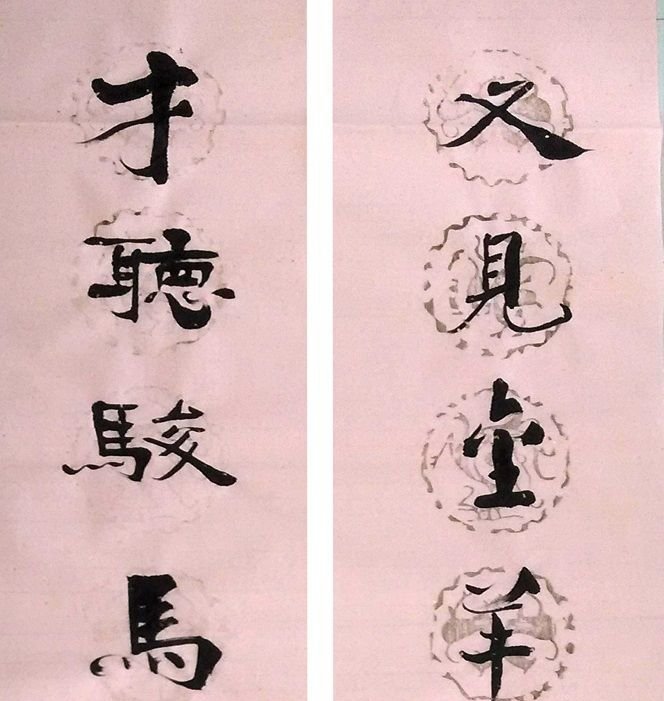 才聽駿馬
又見羊